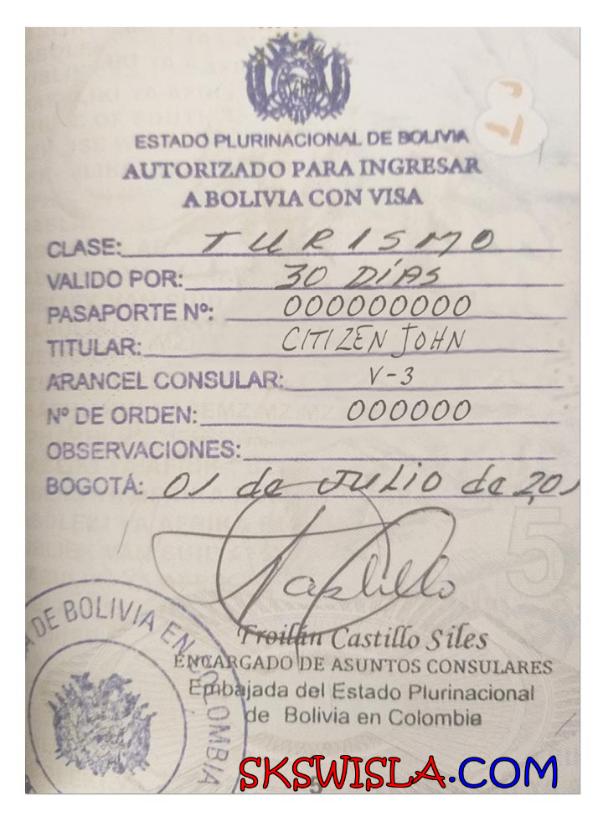 ESTADO PLURINACIONAL DE BOLIVIA
AUTORIZADO PARA INGRESAR
A BOLIVIA CON VISA
CLASE: TURISMO
VALIDO POR: 30 DÍAS
PASAPORTE Nº: 000000000
TITULAR: CITIZEN JOHN
ARANCEL CONSULAR: V-3
Nº DE ORDEN: 000000
OBSERVACIONES:
BOGOTÁ: 01 de JULIO de 201
Castillo
Froilán Castillo Siles
ENCARGADO DE ASUNTOS CONSULARES
Embajada del Estado Plurinacional
de Bolivia en Colombia
DE BOLIVIA EN COLOMBIA
5
SKSWISLA.COM